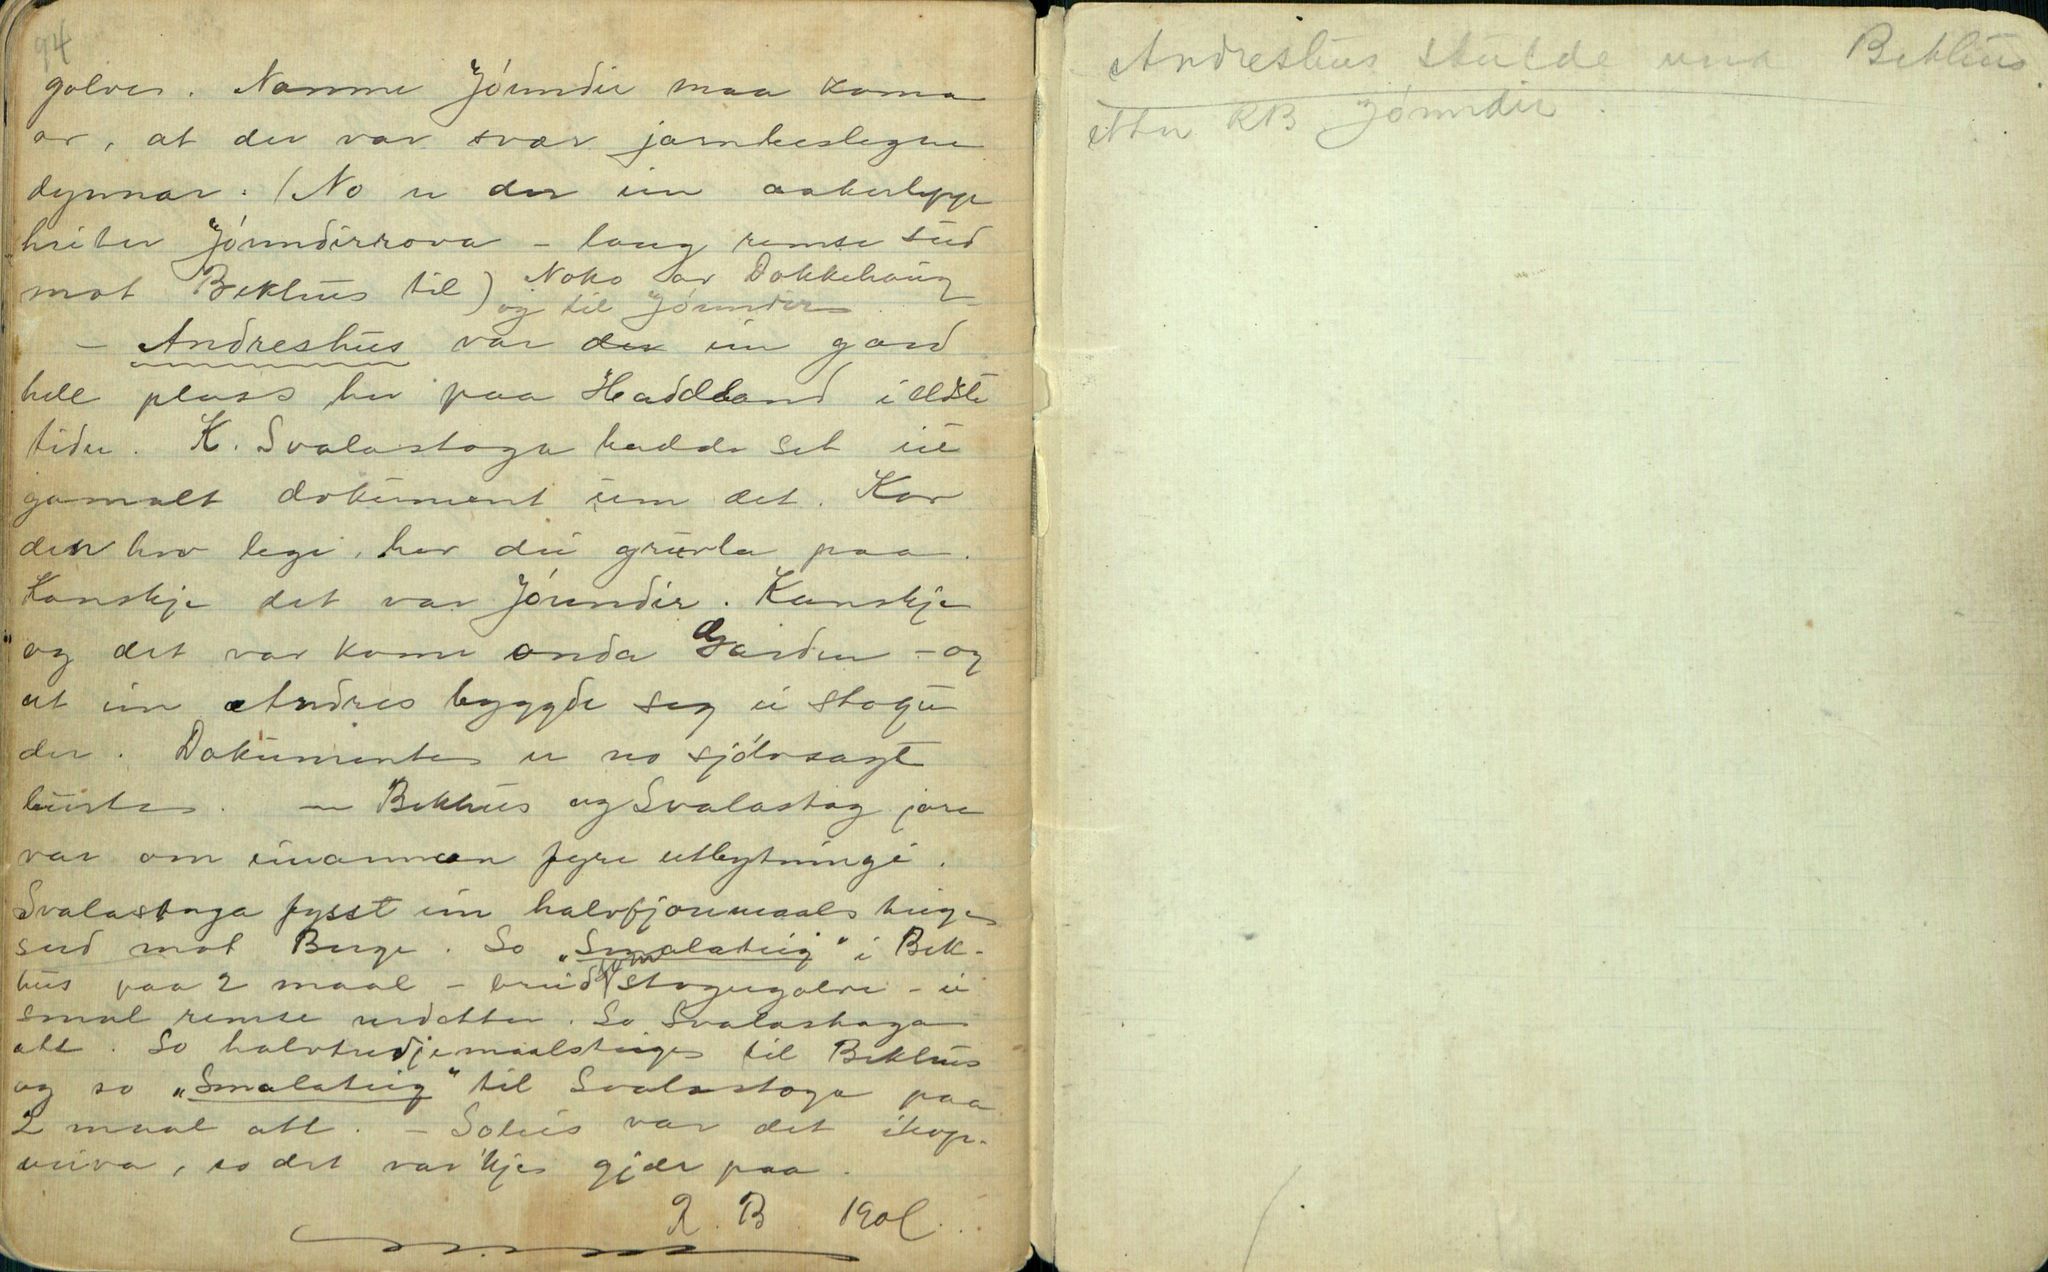 94
golves. Namne Jórundir maa koma
av, at der var svær jarnbeslegne
dynnar. (No er der ein aakerlepp
heiter Jórundirrova – lang remse sud
mot Bekhus til) Noko av Dokkehaug
og til Jórundir
– Andreshus var der ein gard
hell plass her paa Haddland i eldste
tider. K. Svalastoga hadde set eit
gamalt dokument um det. Kor
den hev legi, her dei grurla paa.
Kanskje det var Jórundir. Kanskje
og det var kome onda Garden – og
at ein Andres bygde seg ei stogu
der. Dokumentes er no sjölvsagt
burte. – Bekhus og Svalastog jore
var om einannan fyre utbytningi.
Svalastoga fysst ein halvfjoremaals teige
sud mot Berge. So "Smalateig" i Bek-
hus paa 2 maal – breid som stogugolve – ei
smal remse nedetter. So Svalastoga
att. So halvtredjemaalsteigen til Bekhus
og so "Smalateig" til Svalastoga paa
2 maal att. – Soleis var det ihop-
veiva, so det var 'kje gjær paa.
R. B. 1901.
Andreshus skulde vera Bekhus.
etter RB Jórundir.